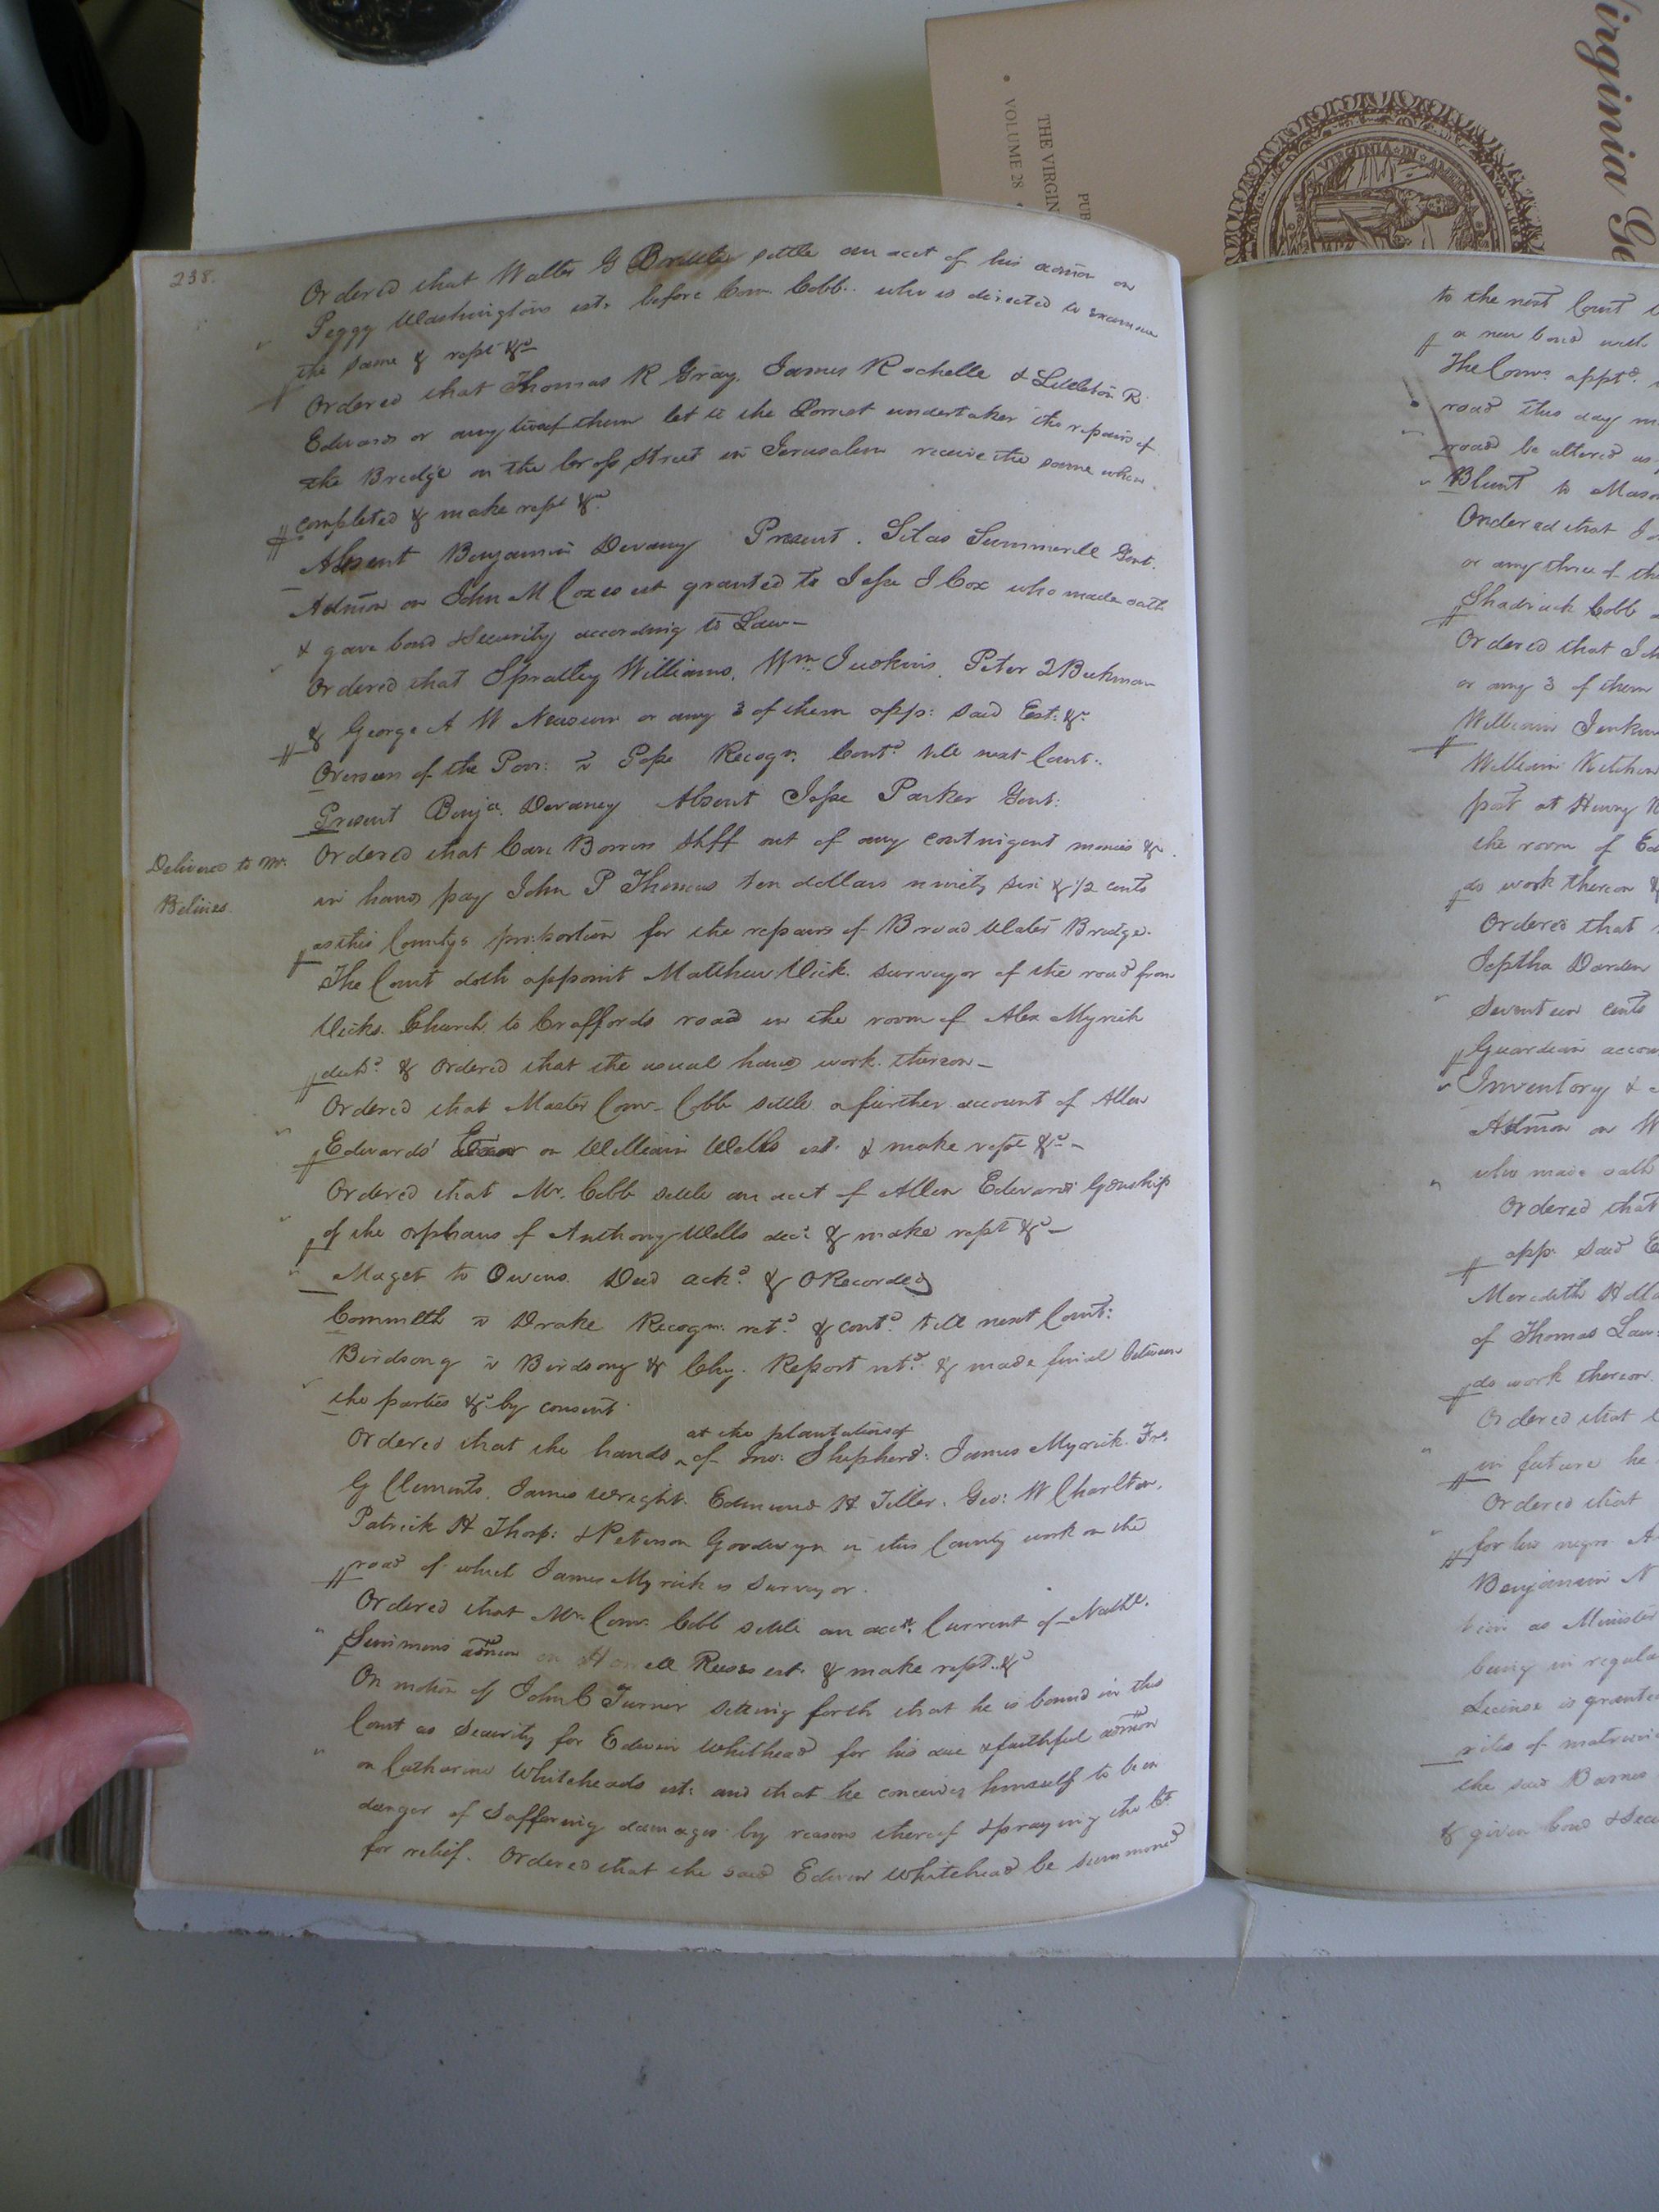 irginia Ge
PUB
THE VIRGIN
• VOLUME 28 •
VIRGINIA · IN · AMER
238.
Ordered that Walter G settle an acct of his admon on
Peggy Washingtons est: before Com. Cobb. who is directed to examine
the same & rept &c
Ordered that Thomas R Gray, James Rochelle & Littleton R
Edwards or any two of them let to the Lowest undertaker the repairs of
the Bredge on the Cross Street in Jerusalem receive the same when
completed & make rept &c
Absent Benjamin Devany Present. Silas Summerell Gent.
Admon on John M Coxes est granted to Jesse J Cox who made oath
& gave bond & Security according to Law-
Ordered that Spratley Williams, Wm Judkins, Peter J Beckman
& George A W Newsum or any 3 of them app: said Est: &c
Overseers of the Poor: vs Pope Recogn. Contd till next Court.
Present Benja. Devaney Absent Jesse Parker Gent:
Delivered to Mr.
Belines.
Ordered that Carr Bowers Shff out of any contingent monies &c.
in hand pay John P Thomas ten dollars ninety six & 1/2 cents
as this Countys proportion for the repairs of Broad Water Bridge.
The Court doth appoint Matthew Vick surveyor of the road from
Vicks Church to Craffords road in the room of Alex Myrick
decd. & Ordered that the usual hands work thereon-
Ordered that Master Comr. Cobb settle a further account of Allen
Edwards' on William Wells est. & make rept &c-
Ordered that Mr. Cobb settle an acct of Allen Edwards' Gdnship
of the orphans of Anthony Wells decd & make rept &c-
Maget to Owens. Deed ackd. & ORecorded
Commlth vs Drake Recogn. retd. & contd. till next Court:
Birdsong vs Birdsong & Chy. Report retd. & made final between
the parties &c by consent
at the plantations of
Ordered that the hands ^ of Jno: Shepherd: James Myrick. Fr.
G Clements, James Wright. Edmund H Teller. Geo: W Charlton,
Patrick H Thorp: & Peterson Goodwyn in this County work on the
road of which James Myrick is Surveyor.
Ordered that Mr. Comr. Cobb settle an acct. Current of Nathl.
Simmons admon on Howell Reeses est. & make rept. &c
On motion of John C Turner setting forth that he is bound in this
Court as Security for Edwin Whithead for his due & faithful admon
on Catharine Whiteheads est: and that he conceives himself to be in
danger of Saffering damages by reasons thereof & praying the Ct.
for relief. Ordered that the said Edwin Whitehead be summoned
to the next Court
a new bond with
The Comrs. apptd.
road this day m
road be altered as
Blunt to Mason
Ordered that J
or any three of the
Shadrick Cobb
Ordered that Joh
or any 3 of them
William Jenkin
William Kitchen
post at Henry
the room of Ed
do work thereon &
Ordered that
Jeptha Darden
Seventeen cents
Guardian accou
Inventory &
Admon on W
who made oath
Ordered that
app. said E
Meredith Holla
of Thomas Law
do work thereon.
Ordered that
in future he
Ordered that
for his negro
Benjamin N
as Minister
being in regula
License is grante
rites of matrimo
the said Barnes
& given bond & Secu